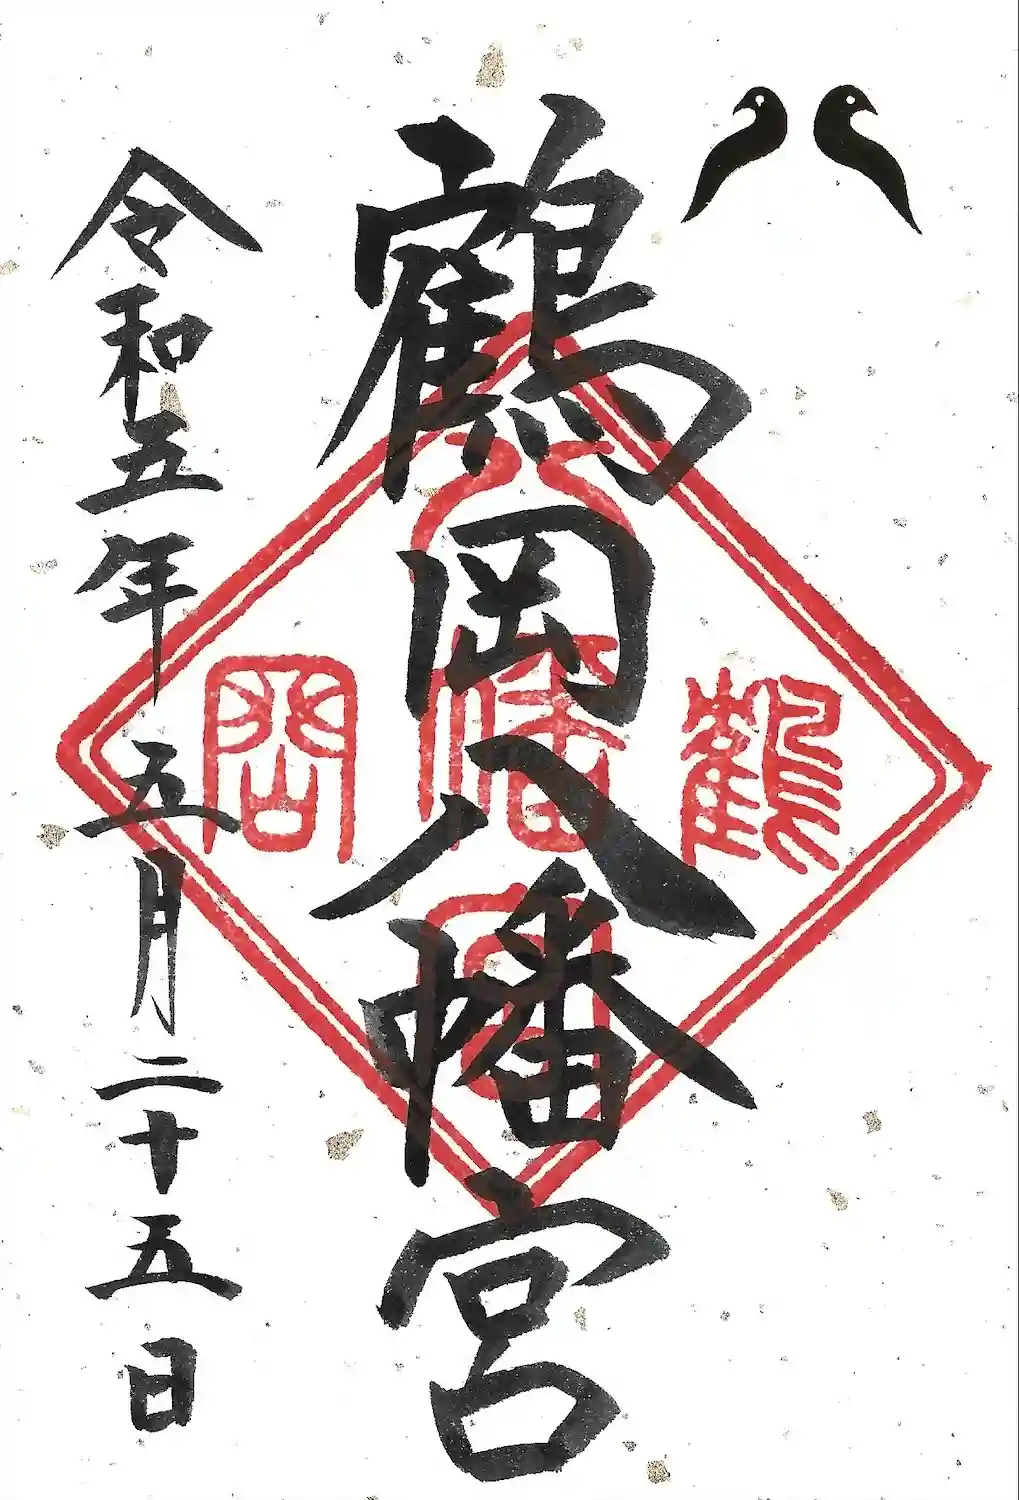 鶴岡八幡宮
鶴岡
八幡宮
令和五年五月二十五日